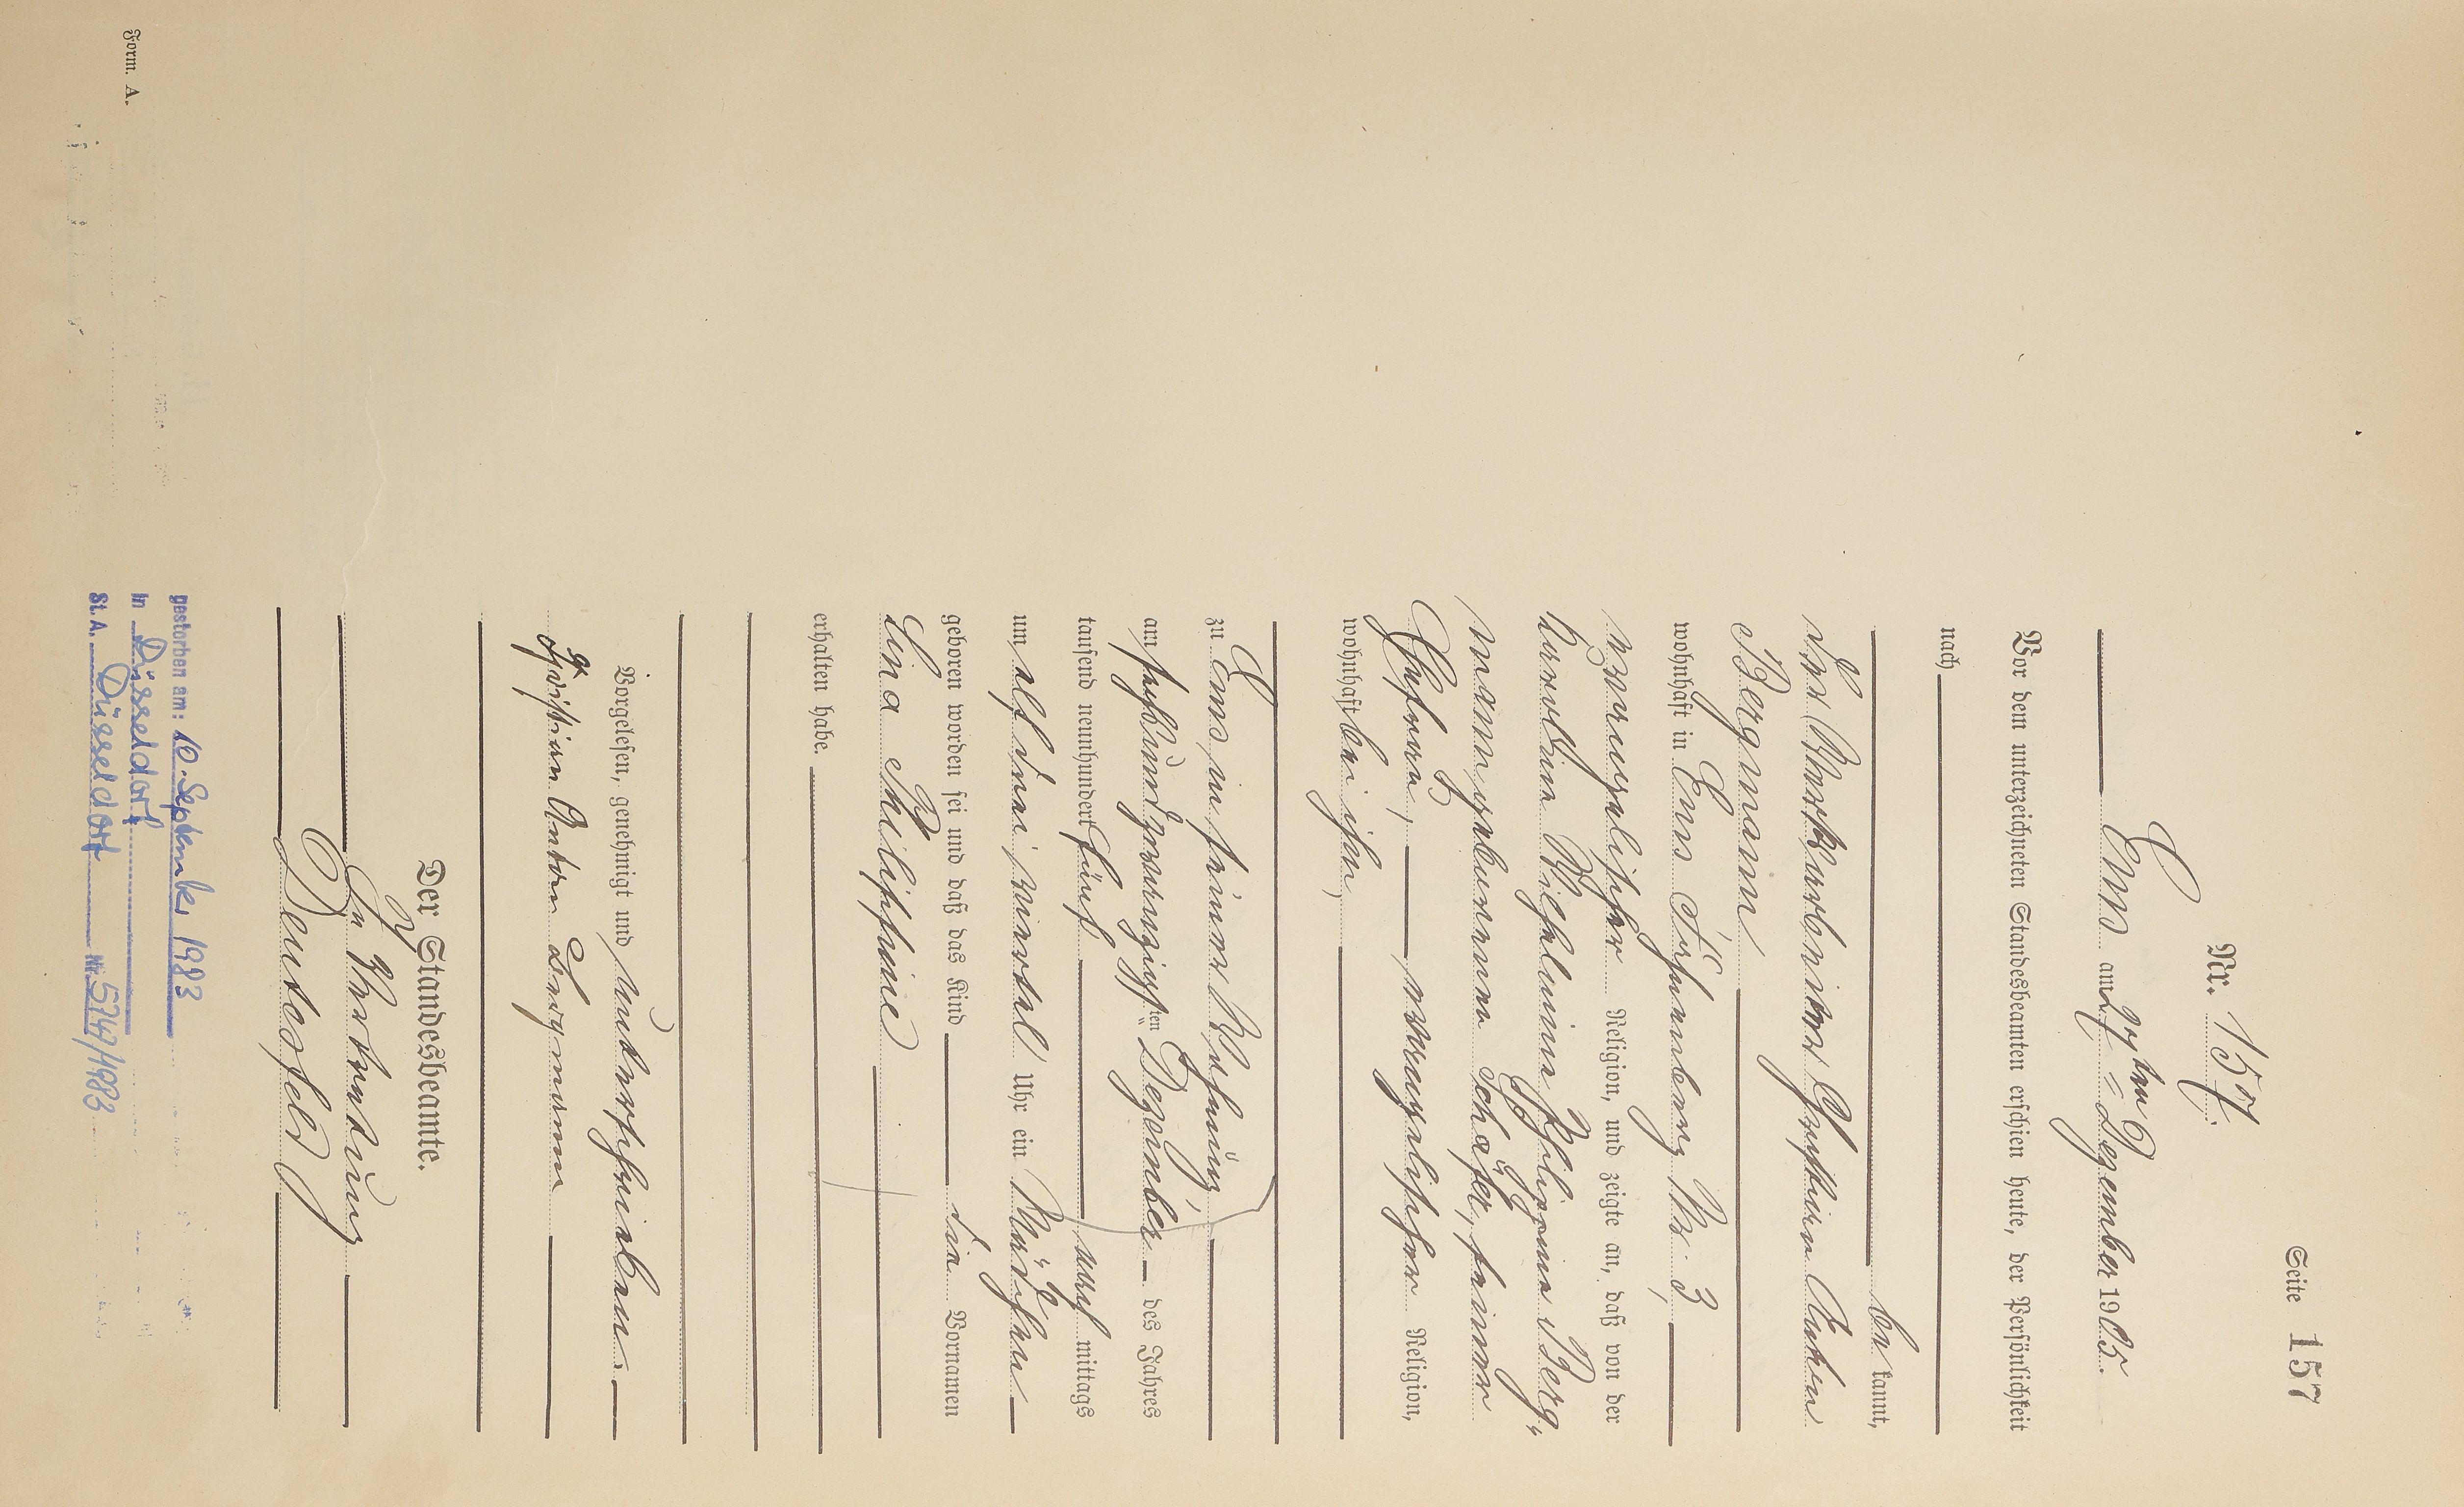 Seite 157
Nr. 157.
Ems am 27ten Dezember 1905.
Vor dem unterzeichneten Standesbeamten erschien heute, der Persönlichkeit
nach
be kannt,
der Werksarbeiter Christian Anton
Bergmann
wohnhaft in Ems Nr. 3,
evangelischer Religion, und zeigte an, daß von der
Karoline Wilhelmine Philippine Berg„
mann geborenen Schäfer, seiner
Ehefrau, evangelischer Religion,
wohnhaft bei ihm,
zu Ems, in seiner Wohnung,
am sechsundzwanzigsten Dezember des Jahres
tausend neunhundert fünf nach mittags
um elf drei viertel Uhr ein Mädchen
geboren worden sei und daß das Kind die Vornamen
Lina Philippine
erhalten habe.
Vorgelesen, genehmigt und unterschrieben.
Christian Anton Bergmann
Der Standesbeamte.
In Vertretung
Deutesfeld
gestorben am: 10. September 1983
in Düsseldorf
St. A. Düsseldorf Nr. 574/1983
Form. A.